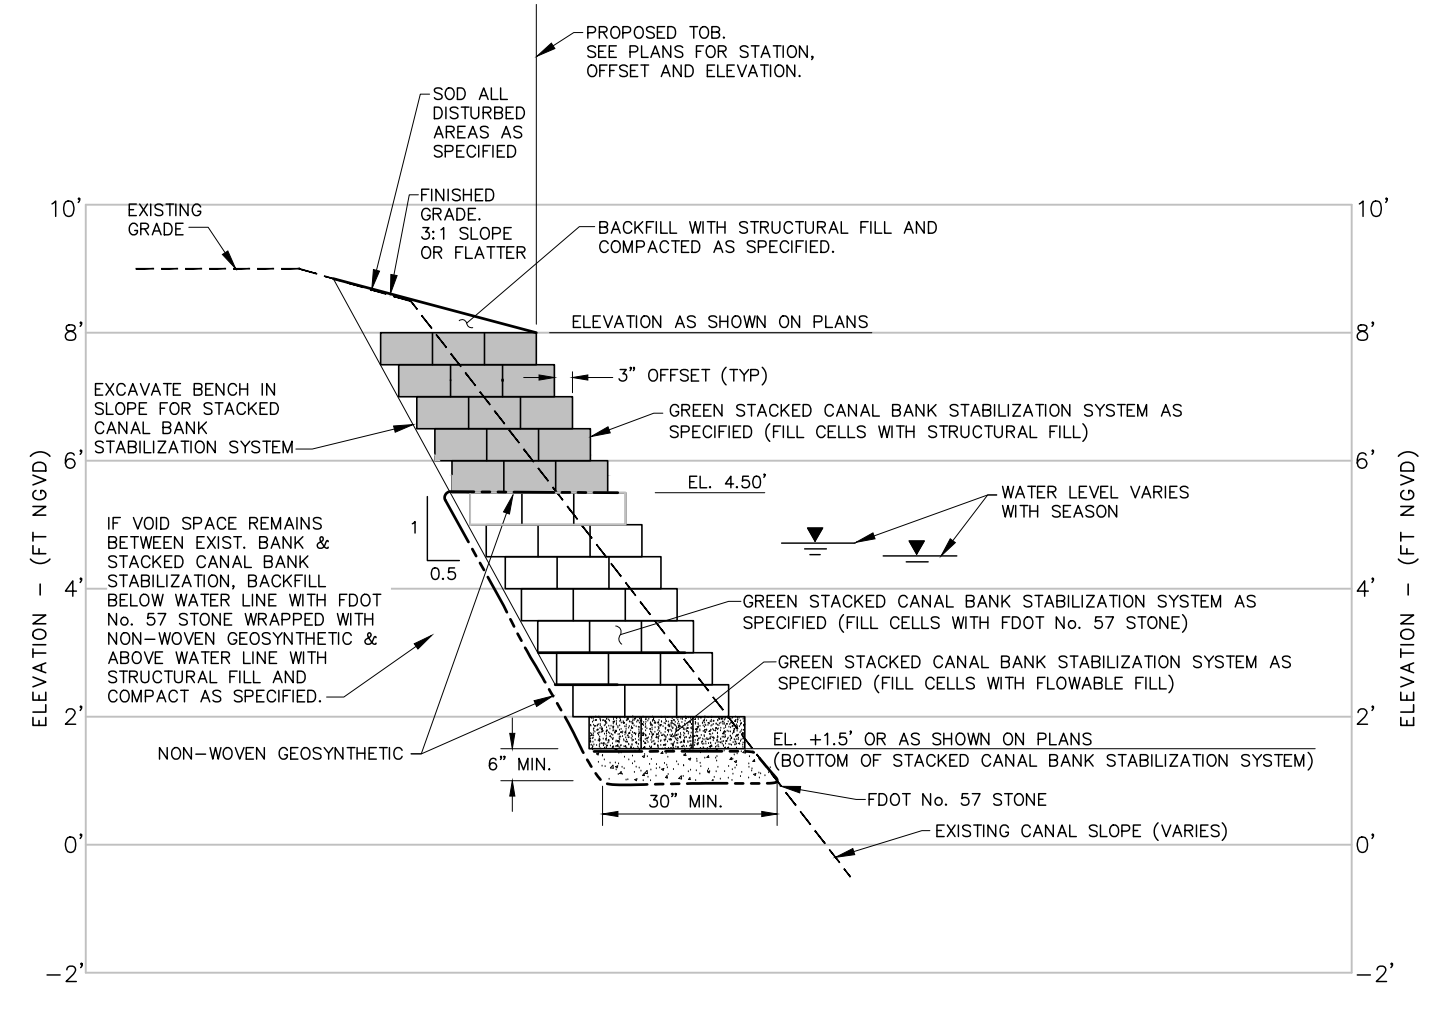 PROPOSED TOB.
SEE PLANS FOR STATION,
OFFSET AND ELEVATION.
SOD ALL
DISTURBED
AREAS AS
SPECIFIED
FINISHED
GRADE.
3:1 SLOPE
OR FLATTER
EXISTING
GRADE
BACKFILL WITH STRUCTURAL FILL AND
COMPACTED AS SPECIFIED.
ELEVATION AS SHOWN ON PLANS
3" OFFSET (TYP)
EXCAVATE BENCH IN
SLOPE FOR STACKED
CANAL BANK
STABILIZATION SYSTEM
GREEN STACKED CANAL BANK STABILIZATION SYSTEM AS
SPECIFIED (FILL CELLS WITH STRUCTURAL FILL)
EL. 4.50'
WATER LEVEL VARIES
WITH SEASON
1
0.5
IF VOID SPACE REMAINS
BETWEEN EXIST. BANK &
STACKED CANAL BANK
STABILIZATION, BACKFILL
BELOW WATER LINE WITH FDOT
No. 57 STONE WRAPPED WITH
NON-WOVEN GEOSYNTHETIC &
ABOVE WATER LINE WITH
STRUCTURAL FILL AND
COMPACT AS SPECIFIED.
GREEN STACKED CANAL BANK STABILIZATION SYSTEM AS
SPECIFIED (FILL CELLS WITH FDOT No. 57 STONE)
GREEN STACKED CANAL BANK STABILIZATION SYSTEM AS
SPECIFIED (FILL CELLS WITH FLOWABLE FILL)
NON-WOVEN GEOSYNTHETIC
6" MIN.
30" MIN.
EL. +1.5' OR AS SHOWN ON PLANS
(BOTTOM OF STACKED CANAL BANK STABILIZATION SYSTEM)
FDOT No. 57 STONE
EXISTING CANAL SLOPE (VARIES)
10'
8'
6'
4'
2'
0'
-2'
ELEVATION - (FT NGVD)
10'
8'
6'
4'
2'
0'
-2'
ELEVATION - (FT NGVD)